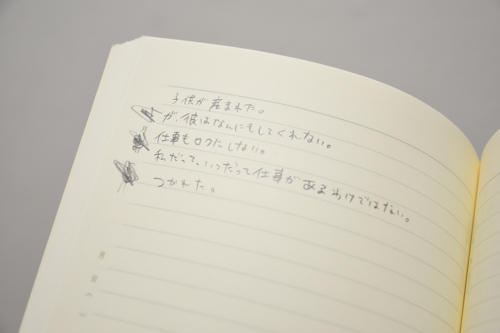 子供が産まれた。
が、彼はなんにもしてくれない。
仕事もロクにしない。
私だって、いつだって仕事があるわけではない。
つかれた。